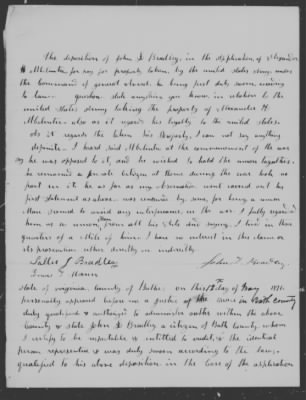 The deposition of John S Bradley, in the application of Alexander
H McClintic for pay for property taken, by the united states army, under
the command of general Averel. he being first duly sworn according
to law. question state anything you know in relation to the
united States Army taking the property of Alexander H.
McClintic also as it regards his loyalty to the united states.
As it regards the taken his Property, I can not say anything
definite. I heard said McClintic at the commencement of the war
say he was opposed to it, and he wished to hold the union together.
he remained a private citizen at home during the war took no
part in it. he as far as my observation went carried out his
first statement as above. was censured by some, for being a union
Man. seemed to avoid any interference in the war. I fully regard
him as a union man from all his acts and sayings. I live in three
quarters of a Mile of him. I have no interest in this claim or
its prosecution either directly or indirectly.
Bradley John S Bradley
State of virginia, County of Bathe. on this day of May 1871.
personally appeared before me a justice of the peace in Bath County
duly qualified & authorized to administer oaths within the above
County & state John S Bradley a citizen of Bath County, whom
I certify to be reputable & entitled to credit, & the identical
person represented & was duly sworn according to the law,
qualified to his above deposition in the case of the application